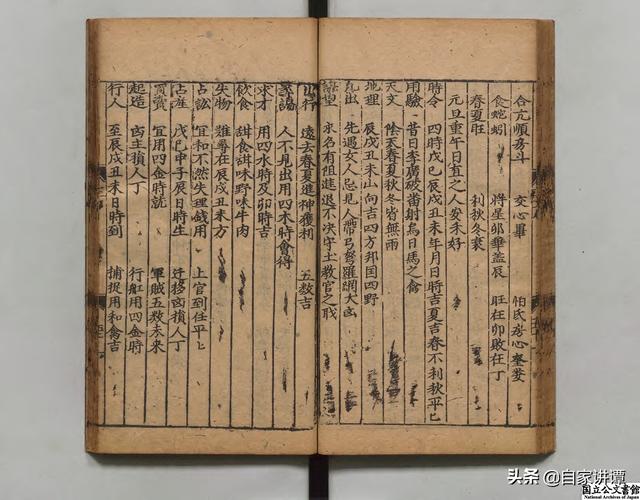 合亢順房斗 交心畢 怕氐房心奎婁
食蛇蚓 將星卯華盖辰 旺在卯敗在丁
春夏旺 利秋冬衰
元旦重午日直之人安未好
時令 四時戊己辰戌丑未年月日時吉夏吉春不利秋平匕
用驗 昔日李廣破番射烏日馬之禽
天文 陰天春夏秋冬皆無雨
地理 辰戌丑未山向吉四方邦国四野
出 先遇女人忌見人帶弓弩羅網大凶
望 求名有阻進退不决守土教官之职
出行 遠去春夏進神獲利 五数吉
謁 人不見出用四木時會得
求才 用四水時及卯時吉
飲食 甜食甜味野味牛肉
失物 難尋在辰戌丑未方
占訟 宜和不然失理錢用 上官到任平匕
占産 戊巳申子辰日時生 迁移凶損人丁
買賣 宜用四金時就 軍賊五数未來
起造 凶主損人丁 行舡用四金時
行人 至辰戌丑未日時到 捕捉用和禽吉
头条 @自家讲谭
国立公文書館
National Archives of Japan